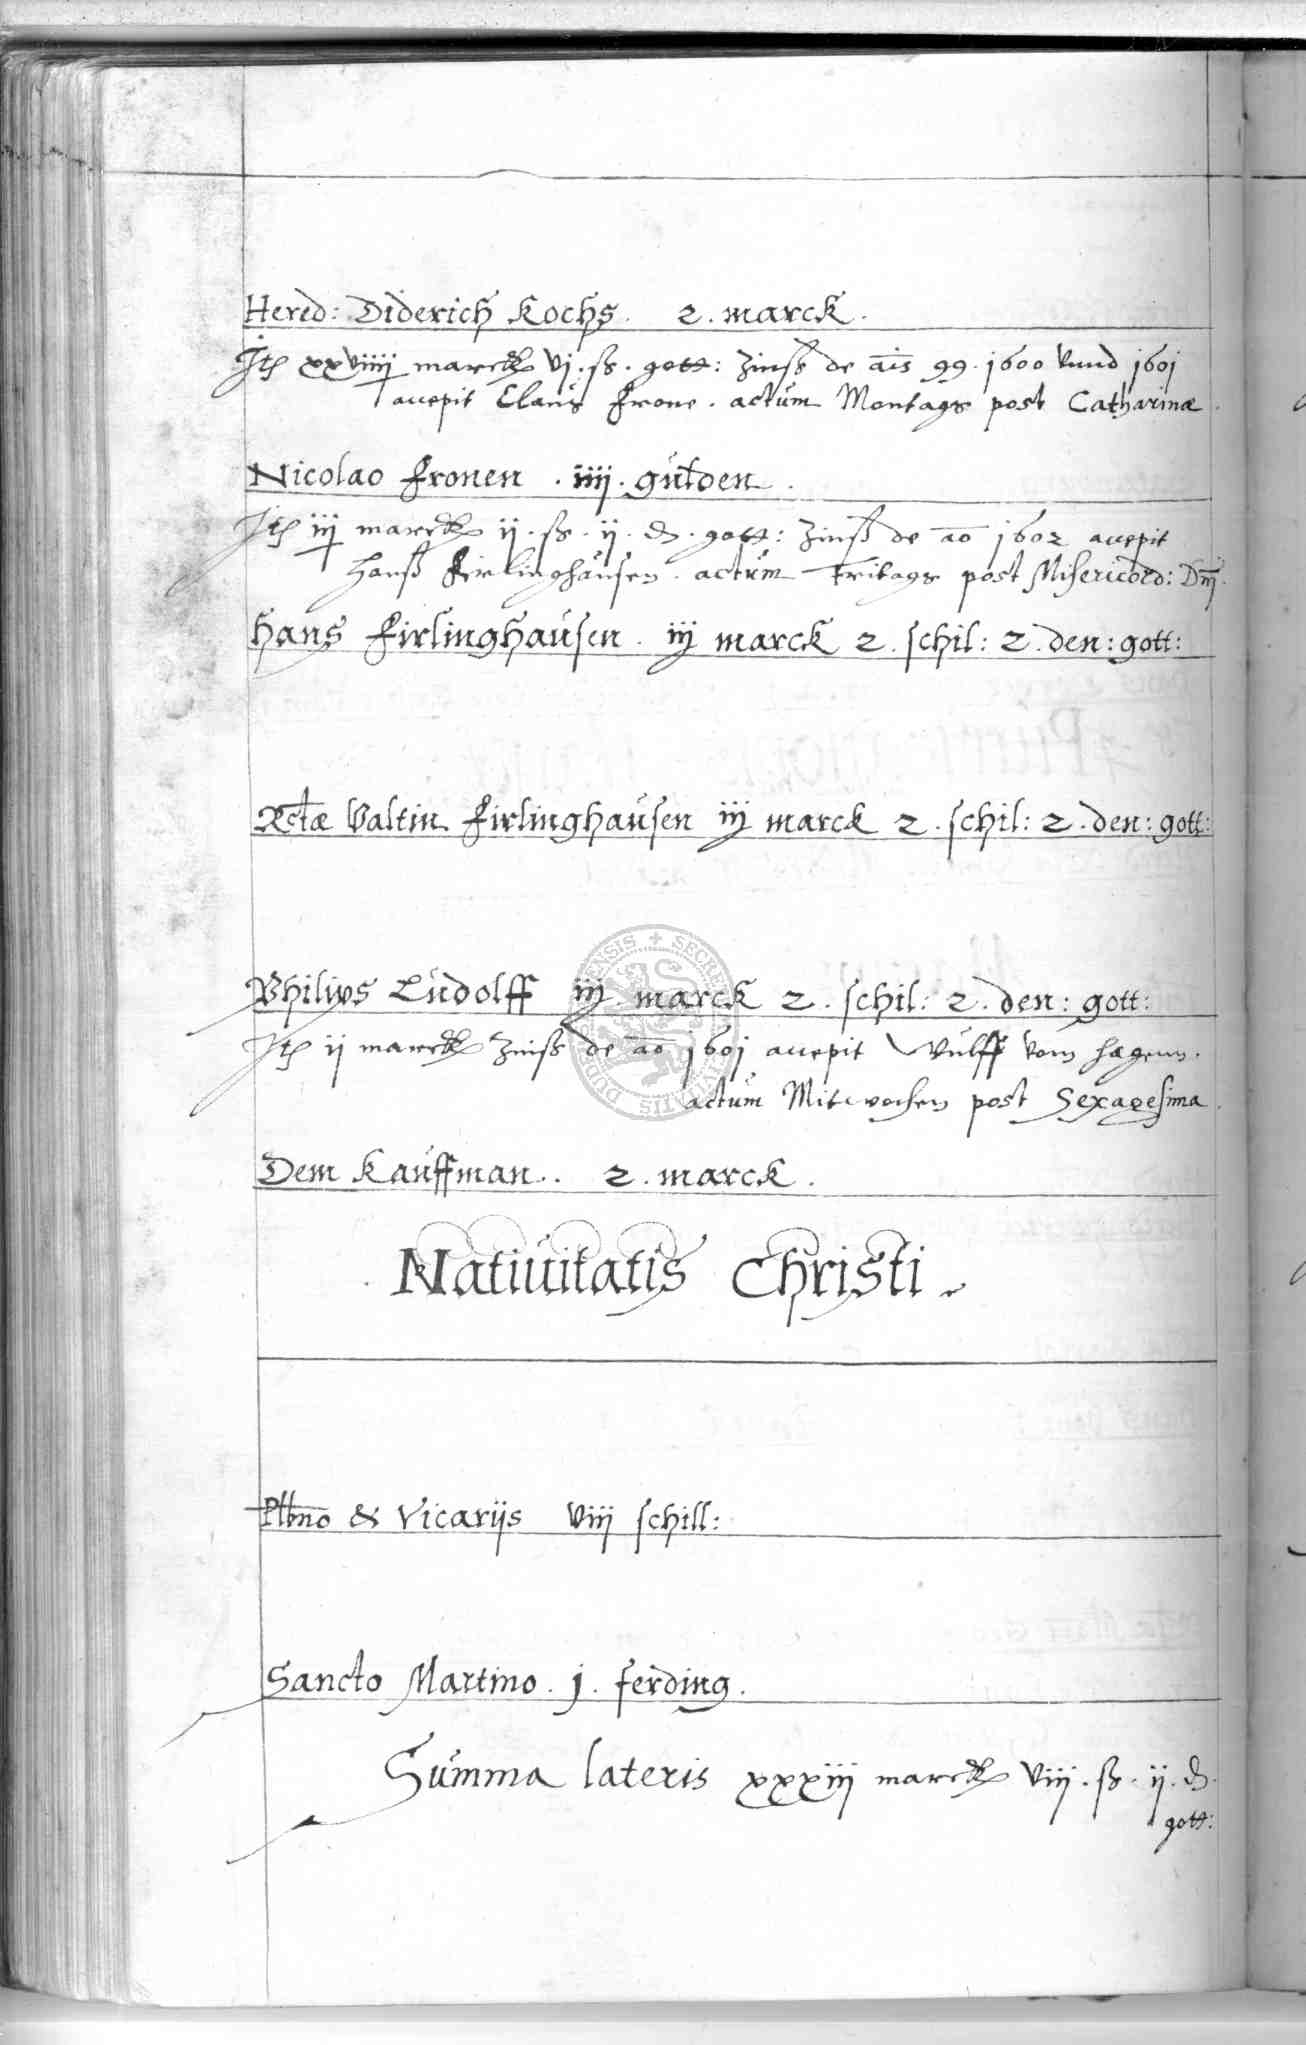 Hered: Diderich Kochs. 2. marck.
Itm xxviiij marck vj. ß. gott: Zinß de ais 99. 1600 vnnd 1601
accepit Claus Frone. actum Montags post Catharinæ.
Nicolao Fronen. iiij. gulden.
Itm iij marck ij. ß. ij. d. gott: Zinß de ao 1602 accepit
Hanß Firlinghausen. actum Fritags post Misericord: Dnj.
Hans Firlinghausen. iij marck 2. schil: 2. den: gott:
Rctæ Valtin Firlinghausen iij marck 2. schil: 2. den: gott:
Philips Ludolff iij. marck 2. schil: 2. den: gott:
Itm ij marck Zinß de ao 1601 accepit Wulff vom
actum Mitwochen post Sexagesima.
Dem Kauffman.. 2. marck.
Natiuitatis Christi.
Plbno & Vicarijs viij schill:
Sancto Martino. j. ferding.
Summa lateris xxxiij marck viij. ß. ij. d.
gott: